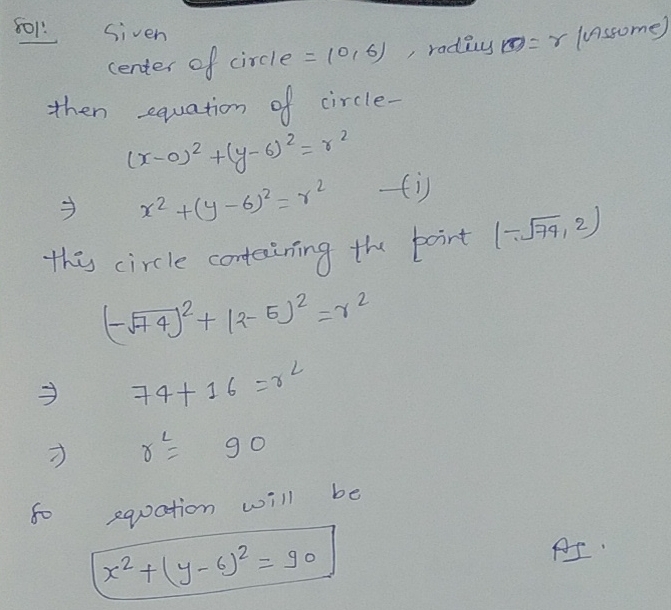 Sol:- Given
center of circle = (0,6) , radius = r (Assume)
then equation of circle-
(x-0)² + (y-6)² = r²
⇒ x² + (y-6)² = r² —(i)
this circle containing the point (-√74, 2)
(-√74)² + (2-6)² = r²
⇒ 74+16 = r²
⇒ r² = 90
So equation will be
x² + (y-6)² = 90